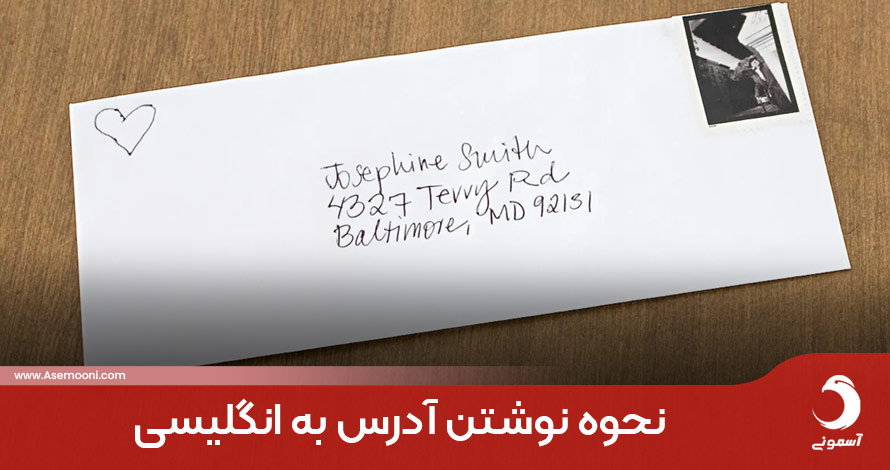 Josephine Smith
4327 Terry Rd
Baltimore, MD 92131
www.Asemooni.com
نحوه نوشتن آدرس به انگلیسی
آسمونی